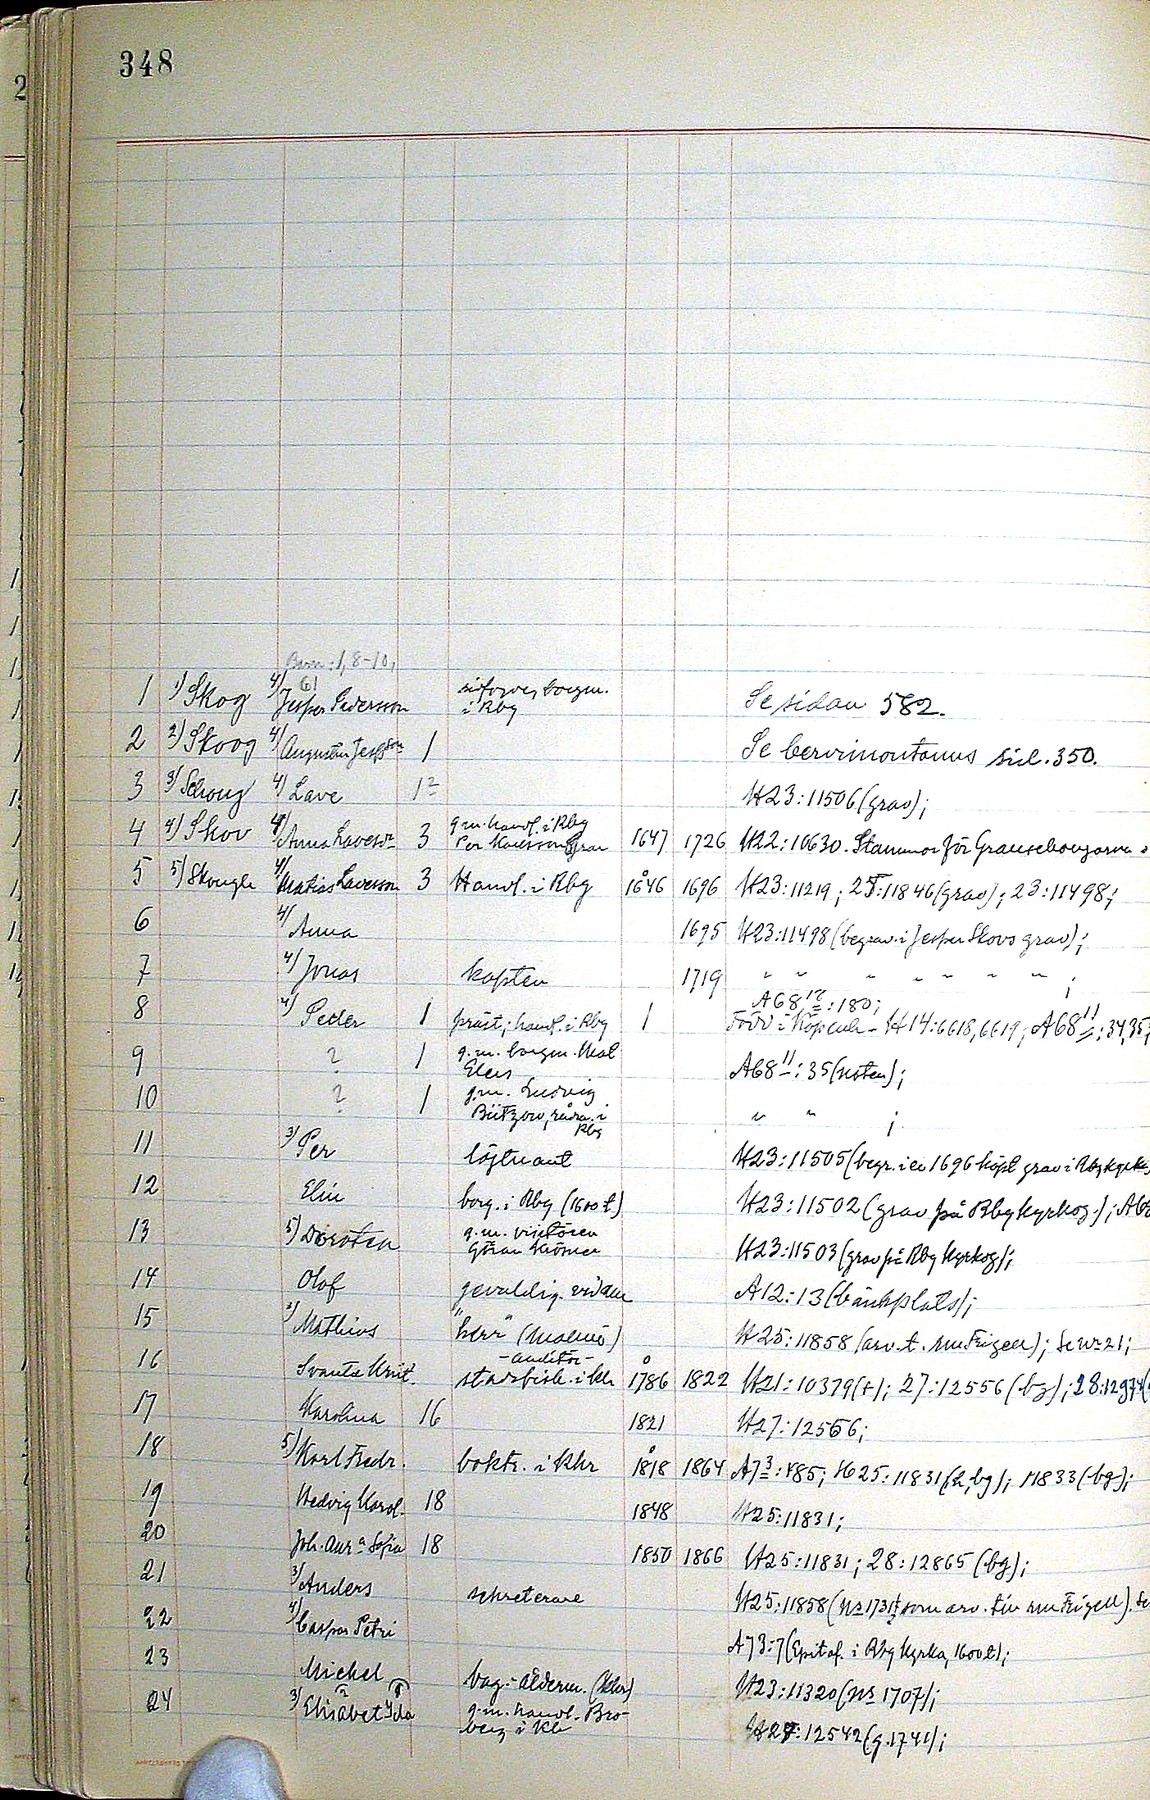 348
2
Barn: 1, 8-10,
61
1 1) Skog 4) Jesper Pedersson borgm. i Rby Se sidan 582.
2 2) Skoog 4) Augustin Jespsson 1 Se Cervimontanus sid. 350.
3 3) Schoug 4) Lave 1? H23:11506 (grav);
4 4) Skov 4) Anna Lavesdr 3 g.m. handl. i Rby Per Karlsson Gran 1647 1726 H22:10630. Stammor för
5 5) Skough 4) Matias Lavesson 3 Handl. i Rby 1646 1696 H23:11219; 25:11846 (grav); 23:11498;
6 4) Anna 1695 H23:11498 (begrav. i Jesper Skovs grav);
7 4) Jonas kapten 1719 " " " " " " " ;
8 4) Peder 1 präst; handl. i Rby 1 A68 12:180;
Född i Köpenh. - H14:6618, 6619; A68 11: 34, 35;
9 ? 1 g.m. borgm. Elers A68 11: 35 (noten);
10 ? 1 g.m. Ludvig Bützow, rådm. i Rby " " ;
11 3) Per löjtnant H23:11505 (begr. i en 1696 köpt grav i Rby kyrka
12 Elin borg. i Rby (1600 t) H23:11502 (grav på Rby kyrkog.); A68
13 5) Doroten g.m. visitören Göran H23:11503 (grav på Rby Kyrkog);
14 Olof gevaldig. vid A12:13 (bänkplats);
15 3) Mathias "herr" (Malmö) H25:11858 (arv. t. Frigell); Se nr 21;
16 Svante Krist. -auditör- stadsfisk. i Khr 1786 1822 H21:10379 (t); 27:12556 (bg); 28:1297
17 Karolina 16 1821 H27:12556;
18 5) Karl Fredr. boktr. i Khr 1818 1864 A73:185; H25:11831 (h, bg); 11833 (bg);
19 Hedvig Karol. 18 1848 H25:11831;
20 Joh. Aura Sofia 18 1850 1866 H25:11831; 28:12865 (bg);
21 3) Anders sekreterare H25:11858 (nr 1731 som arv. Frigell). Se
22 4) Caspar Petri A73:7 (Epitaf. i Rby Kyrka, 1600 t);
23 Michel bag.-ålderm. (Khr) H23:11320 (nr 1707);
24 3) Elisabet Ida g.m. handl. Broberg i Khr H27:12542 (g. 1741);